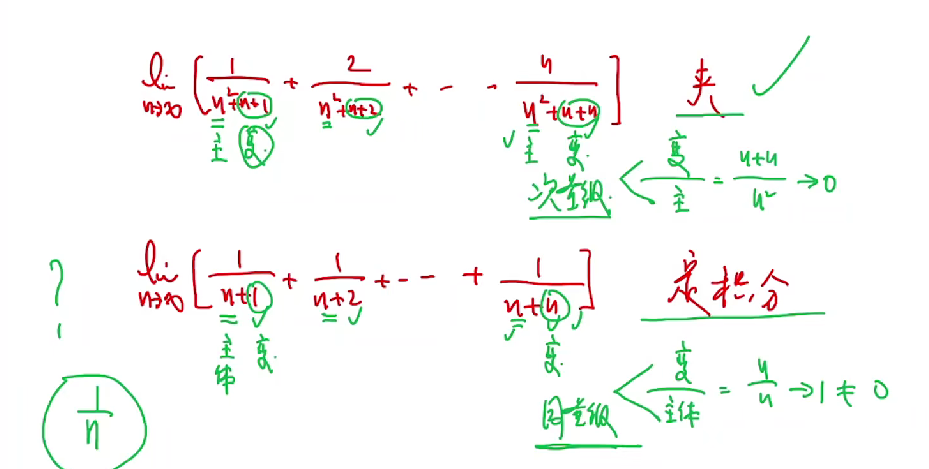 lim n→∞ [ 1/(n²+n+1) + 2/(n²+n+2) + - - n/(n²+n+n) ] 夹 ✓
主 变 主 变
次量级 < 变/主 = (n+n)/n² → 0
? lim n→∞ [ 1/(n+1) + 1/(n+2) + - - + 1/(n+n) ] 定积分
主体 变 变
1/n 同量级 < 变/主体 = n/n → 1 ≠ 0